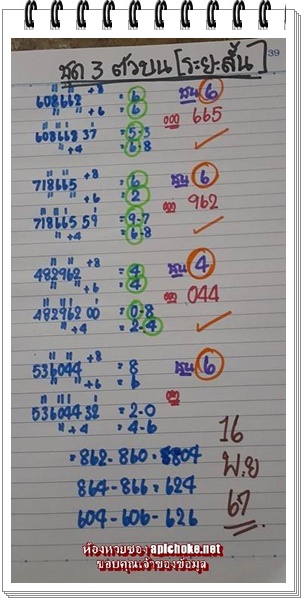 39
ชุด 3 ตัวบน [ระยะสั้น]
608662 +8 = 6 ชน 6
+6 = 6 ออก 665
608662 37 = 5-3
+4 = 6-8
718665 +8 = 6 ชน 6
+6 = 2 ออก 962
718665 59 = 9-7
+4 = 6-8
482962 +8 = 4 ชน 4
+6 = 4 ออก 044
482962 00 = 0-8
+4 = 2-4
536044 +8 = 8 ชน 6
+6 = 6 ออก
536044 32 = 2-0
+4 = 4-6
= 862-860=
864-866=624
604-606-626
16
พ.ย
67
ห้องหวยซอง apichoke.net
ขอบคุณเจ้าของข้อมูล